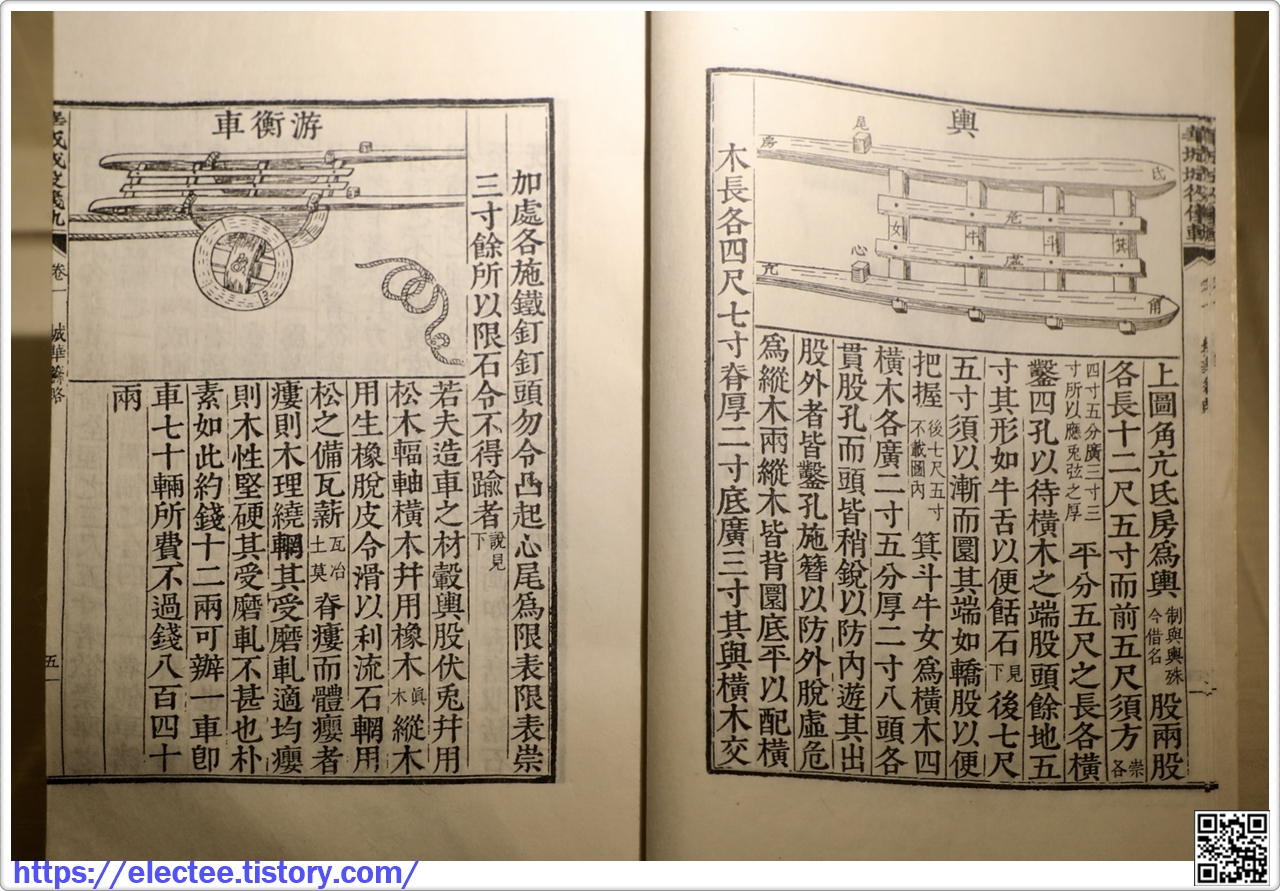 輿
尾
房
氐
危
女
牛
斗
箕
虛
心
亢
角
上圖角亢氐房爲輿制與輿殊今借名股兩股
各長十二尺五寸而前五尺須方崇各
四寸五分廣三寸三寸所以應兎弦之厚平分五尺之長各橫
鑿四孔以待橫木之端股頭餘地五
寸其形如牛舌以便餂石見下後七尺
五寸須以漸而圜其端如轎股以便
把握後七尺五寸不載圖內箕斗牛女爲橫木四
橫木各廣二寸五分厚二寸八頭各
貫股孔而頭皆稍銳以防內遊其出
股外者皆鑿孔施簪以防外脫虛危
爲縱木兩縱木皆背圜底平以配橫
木長各四尺七寸脊厚二寸底廣三寸其與橫木交
加處各施鐵釘釘頭勿令凸起心尾爲限表限表崇
三寸餘所以限石令不得踰者說見下
游衡車
若夫造車之材轂輿股伏兎幷用
松木輻軸橫木幷用橡木眞木縱木
用生橡脫皮令滑以利流石輞用
松之備瓦薪瓦冶土莫脊癭而體癭者
癭則木理繞輞其受磨軋適均癭
則木性堅硬其受磨軋不甚也朴
素如此約錢十二兩可辦一車卽
車七十輛所費不過錢八百四十
兩
卷一
城華籌略
五
https://electee.tistory.com/